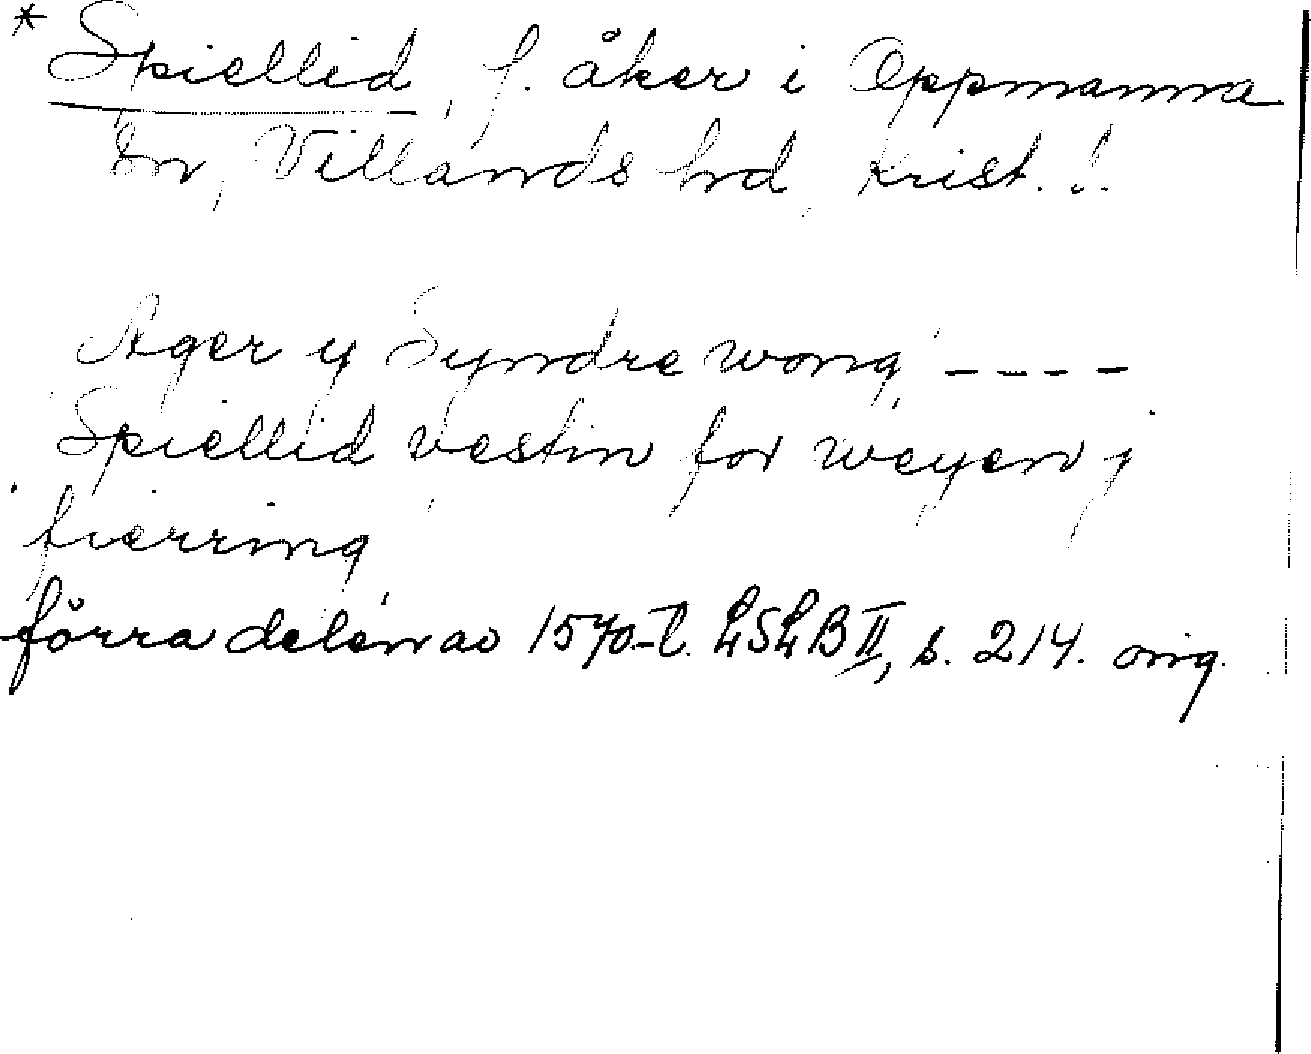 * Spiellid, f. åker i Oppmanna
sn, Villands hd, Krist. l.
Ager y Syndre wong ----
Spiellid vestin for weyen j
fierring
förra delen av 1570-t. LSLB II, s. 214. orig.